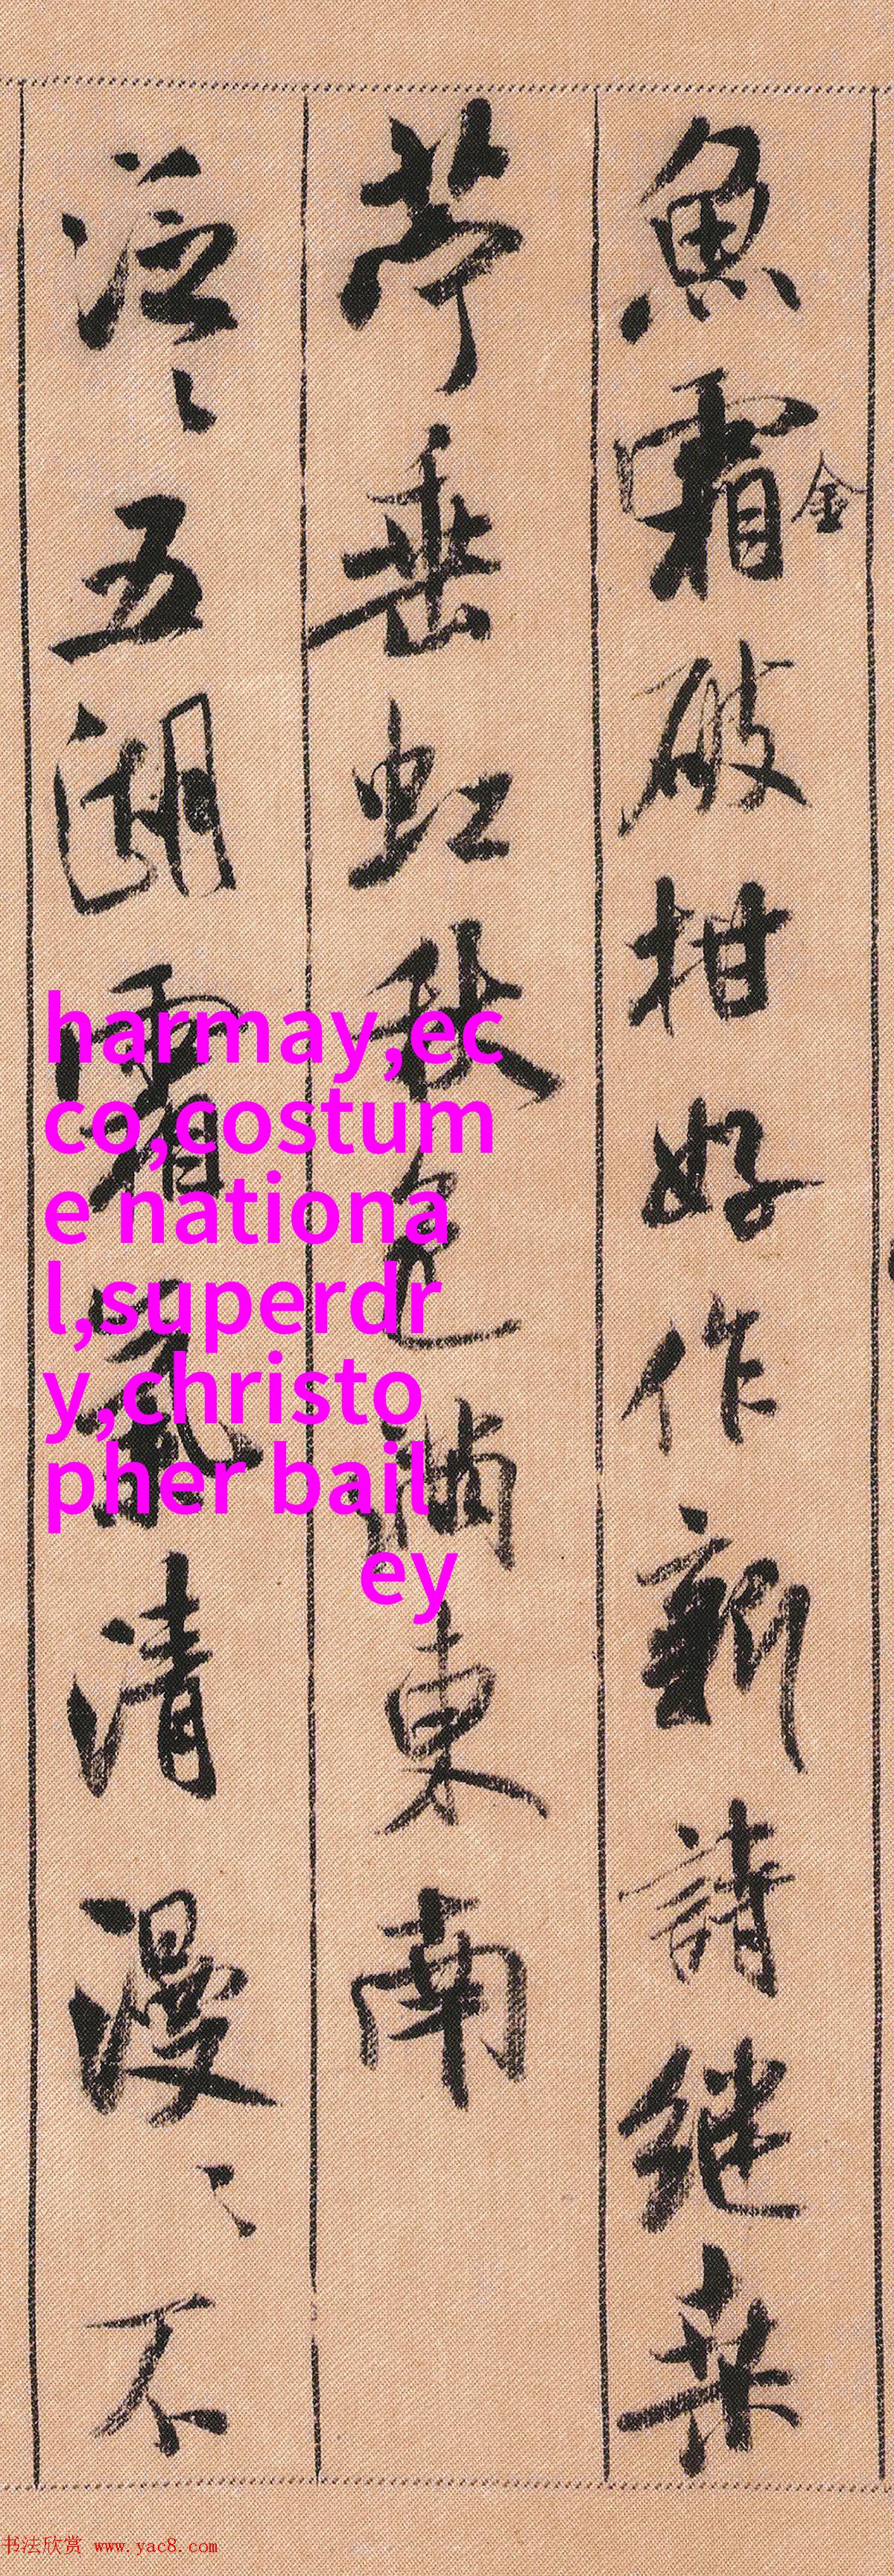 魚霜破柑好作新詩継桒
金
苧垂虹秋色满東南
泛〻五湖霜氣清漫〻不
harmay,ec
co,costum
e nationa
l,superdr
y,christo
pher bail
ey
书法欣赏 www.yac8.com